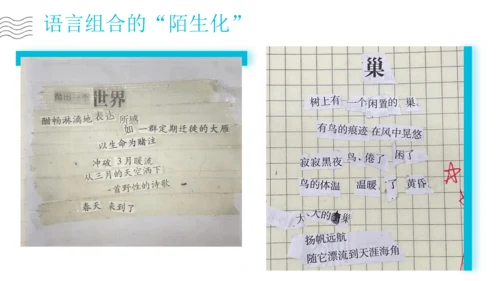 语言组合的“陌生化”
世界
酣畅淋漓地 表达 所感
如 一群定期迁徙的大雁
以生命为赌注
冲破 3月暖流
从三月的天空洒下
一首野性的诗歌
春天 来到了
巢
树上有 一个闲置的 巢
有鸟的痕迹 在风中晃悠
寂寂黑夜 鸟、倦了 困了
鸟的体温 温暖 了 黄昏
大、大的 巢
扬帆远航
随它漂流到天涯海角